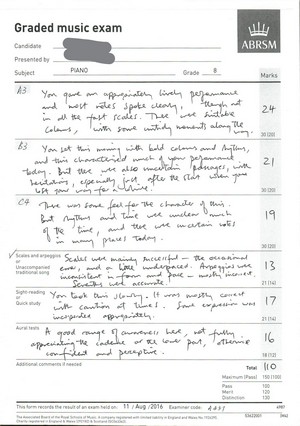 Graded music exam
ABRSM
Candidate
Presented by
Subject PIANO Grade 8 Marks
A3 You gave an appropriately lively performance
and most notes spoke clearly, though not
in all the fast scales. There were suitable
colours, with some untidy moments along the way.
24
30 (20)
B3 You set this moving with bold colours and rhythm,
and this characterised much of your performance
today. But there were also uncertain passages, with
hesitations, especially just after the start when you
lost your way for a while.
21
30 (20)
C4 There was some feel for the character of this.
But rhythms and time were unclear much
of the time, and there were uncertain notes
in many places today.
19
30 (20)
Scales and arpeggios
or
Unaccompanied
traditional song
Scales were mainly successful – the occasional
error, and a little underpaced. Arpeggios were
inconsistent in form and pace – mostly incorrect.
Sevenths were accurate.
13
21 (14)
Sight-reading
or
Quick study
You took this slowly. It was mostly correct
with caution at times. Some expression was
incorporated appropriately.
17
21 (14)
Aural tests
A good range of awareness here, not fully
appreciating the cadence or the lower part, otherwise
confident and perceptive.
16
18 (12)
Additional comments if needed
Total 110
Maximum (Pass) 150 (100)
Pass 100
Merit 120
Distinction 130
This form records the result of an exam held on 11 / Aug / 2016 Examiner code
The Associated Board of the Royal Schools of Music